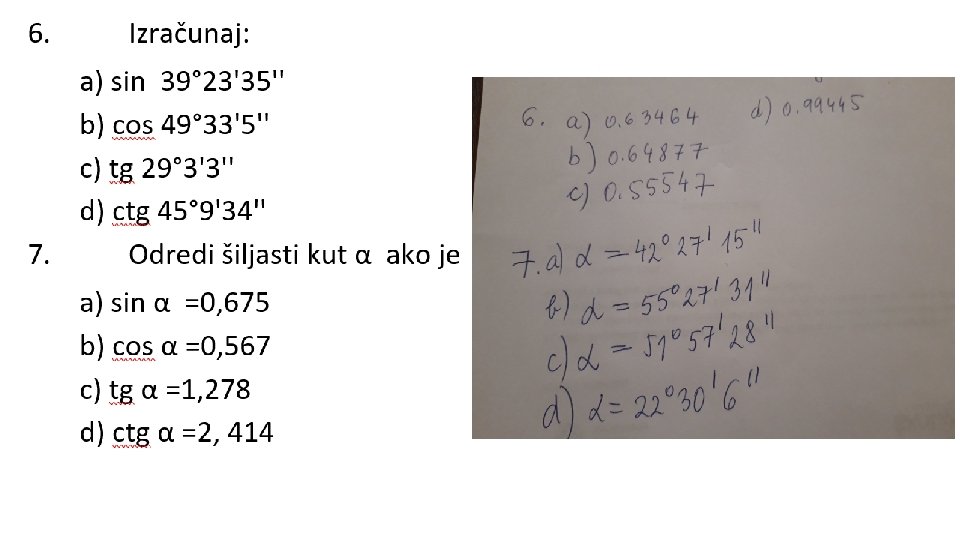 6. Izračunaj:
a) sin 39°23'35''
b) cos 49°33'5''
c) tg 29°3'3''
d) ctg 45°9'34''
7. Odredi šiljasti kut α ako je
a) sin α =0,675
b) cos α =0,567
c) tg α =1,278
d) ctg α =2, 414
6. a) 0.63464 d) 0.99445
b) 0.64877
c) 0.55547
7. a) α = 42° 27' 15''
b) α = 55° 27' 31''
c) α = 51° 57' 28''
d) α = 22° 30' 6''